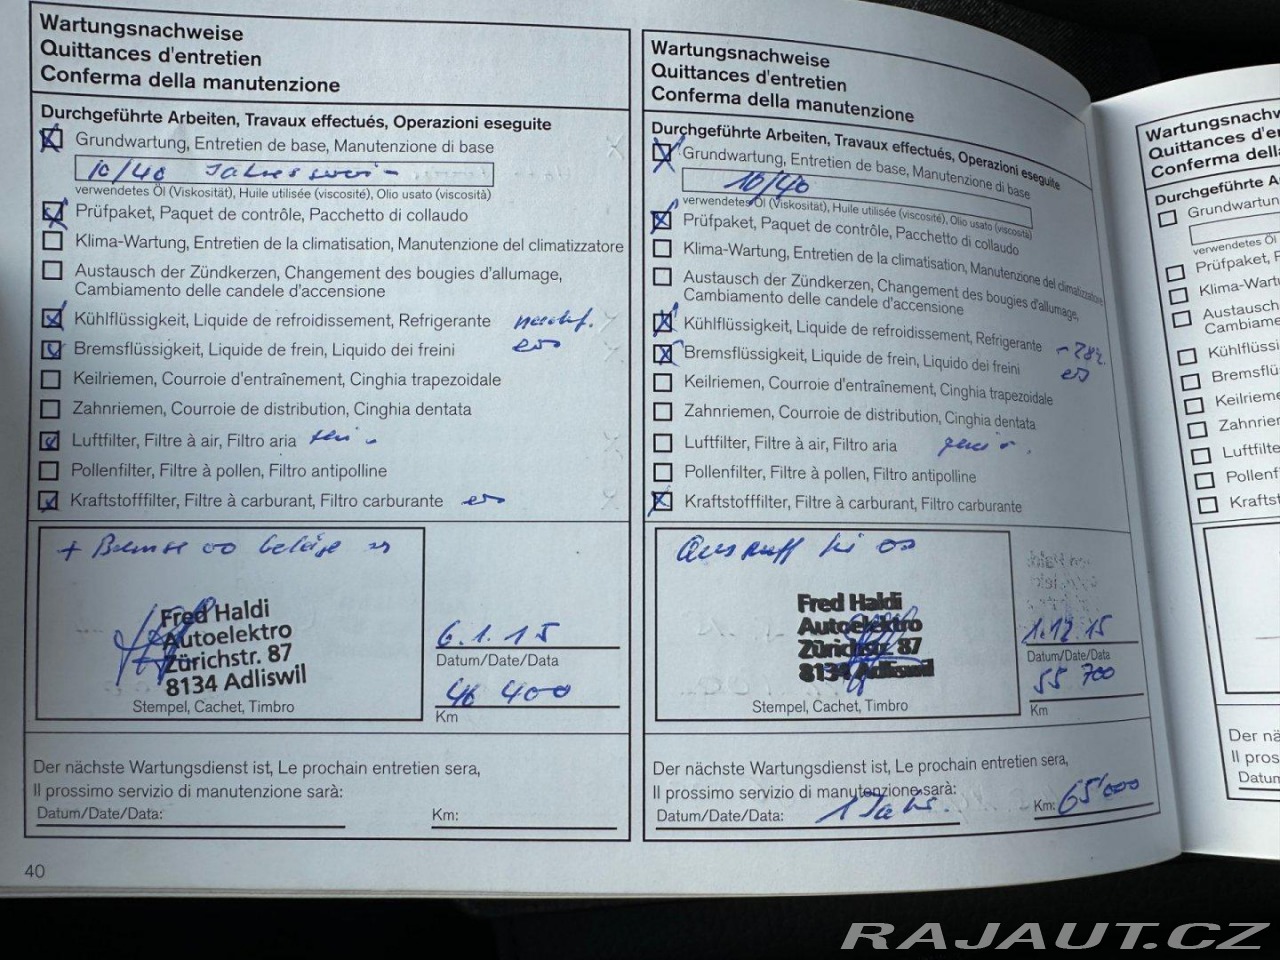 Wartungsnachweise
Quittances d'entretien
Conferma della manutenzione
Durchgeführte Arbeiten, Travaux effectués, Operazioni eseguite
Grundwartung, Entretien de base, Manutenzione di base
10/40
verwendetes Öl (Viskosität), Huile utilisée (viscosité), Olio usato (viscosità)
Prüfpaket, Paquet de contrôle, Pacchetto di collaudo
Klima-Wartung, Entretien de la climatisation, Manutenzione del climatizzatore
Austausch der Zündkerzen, Changement des bougies d'allumage,
Cambiamento delle candele d'accensione
Kühlflüssigkeit, Liquide de refroidissement, Refrigerante
Bremsflüssigkeit, Liquide de frein, Liquido dei freini
Keilriemen, Courroie d'entraînement, Cinghia trapezoidale
Zahnriemen, Courroie de distribution, Cinghia dentata
Luftfilter, Filtre à air, Filtro aria
Pollenfilter, Filtre à pollen, Filtro antipolline
Kraftstofffilter, Filtre à carburant, Filtro carburante
+ Bremse
Fred Haldi
Autoelektro
Zürichstr. 87
8134 Adliswil
Stempel, Cachet, Timbro
6.1.15
Datum/Date/Data
46 400
Km
Der nächste Wartungsdienst ist, Le prochain entretien sera,
Il prossimo servizio di manutenzione sarà:
Datum/Date/Data:
Km:
40
Wartungsnachweise
Quittances d'entretien
Conferma della manutenzione
Durchgeführte Arbeiten, Travaux effectués, Operazioni eseguite
Grundwartung, Entretien de base, Manutenzione di base
10/40
verwendetes Öl (Viskosität), Huile utilisée (viscosité), Olio usato (viscosità)
Prüfpaket, Paquet de contrôle, Pacchetto di collaudo
Klima-Wartung, Entretien de la climatisation, Manutenzione del climatizzatore
Austausch der Zündkerzen, Changement des bougies d'allumage,
Cambiamento delle candele d'accensione
Kühlflüssigkeit, Liquide de refroidissement, Refrigerante
Bremsflüssigkeit, Liquide de frein, Liquido dei freini
Keilriemen, Courroie d'entraînement, Cinghia trapezoidale
Zahnriemen, Courroie de distribution, Cinghia dentata
Luftfilter, Filtre à air, Filtro aria
Pollenfilter, Filtre à pollen, Filtro antipolline
Kraftstofffilter, Filtre à carburant, Filtro carburante
Fred Haldi
Autoelektro
Zürichstr. 87
8134 Adliswil
Stempel, Cachet, Timbro
1.12.15
Datum/Date/Data
55 700
Km
Der nächste Wartungsdienst ist, Le prochain entretien sera,
Il prossimo servizio di manutenzione sarà:
Datum/Date/Data: 1 Jahr. Km: 65'000
Wartungsnachw
Quittances d'en
Conferma della
Durchgeführte A
Grundwartun
verwendetes Öl
Prüfpaket, P
Klima-Wartu
Austausch
Cambiamen
Kühlflüssig
Bremsflüs
Keilrieme
Zahnrieme
Luftfilte
Pollenfil
Kraftst
Der nä
Il pros
Datum
RAJAUT.CZ